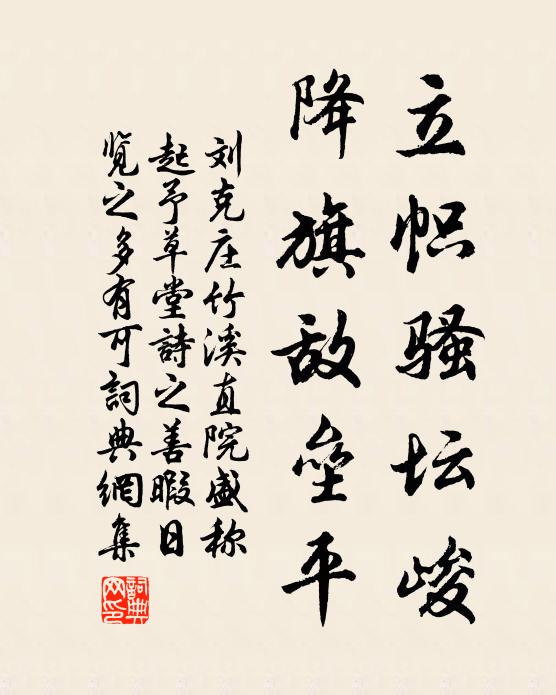 立帜骚坛峻
降旗敌垒平
刘克庄竹溪直院盛称
起予草堂詩之善暇日
览之多有可詞典網集
詞典網印